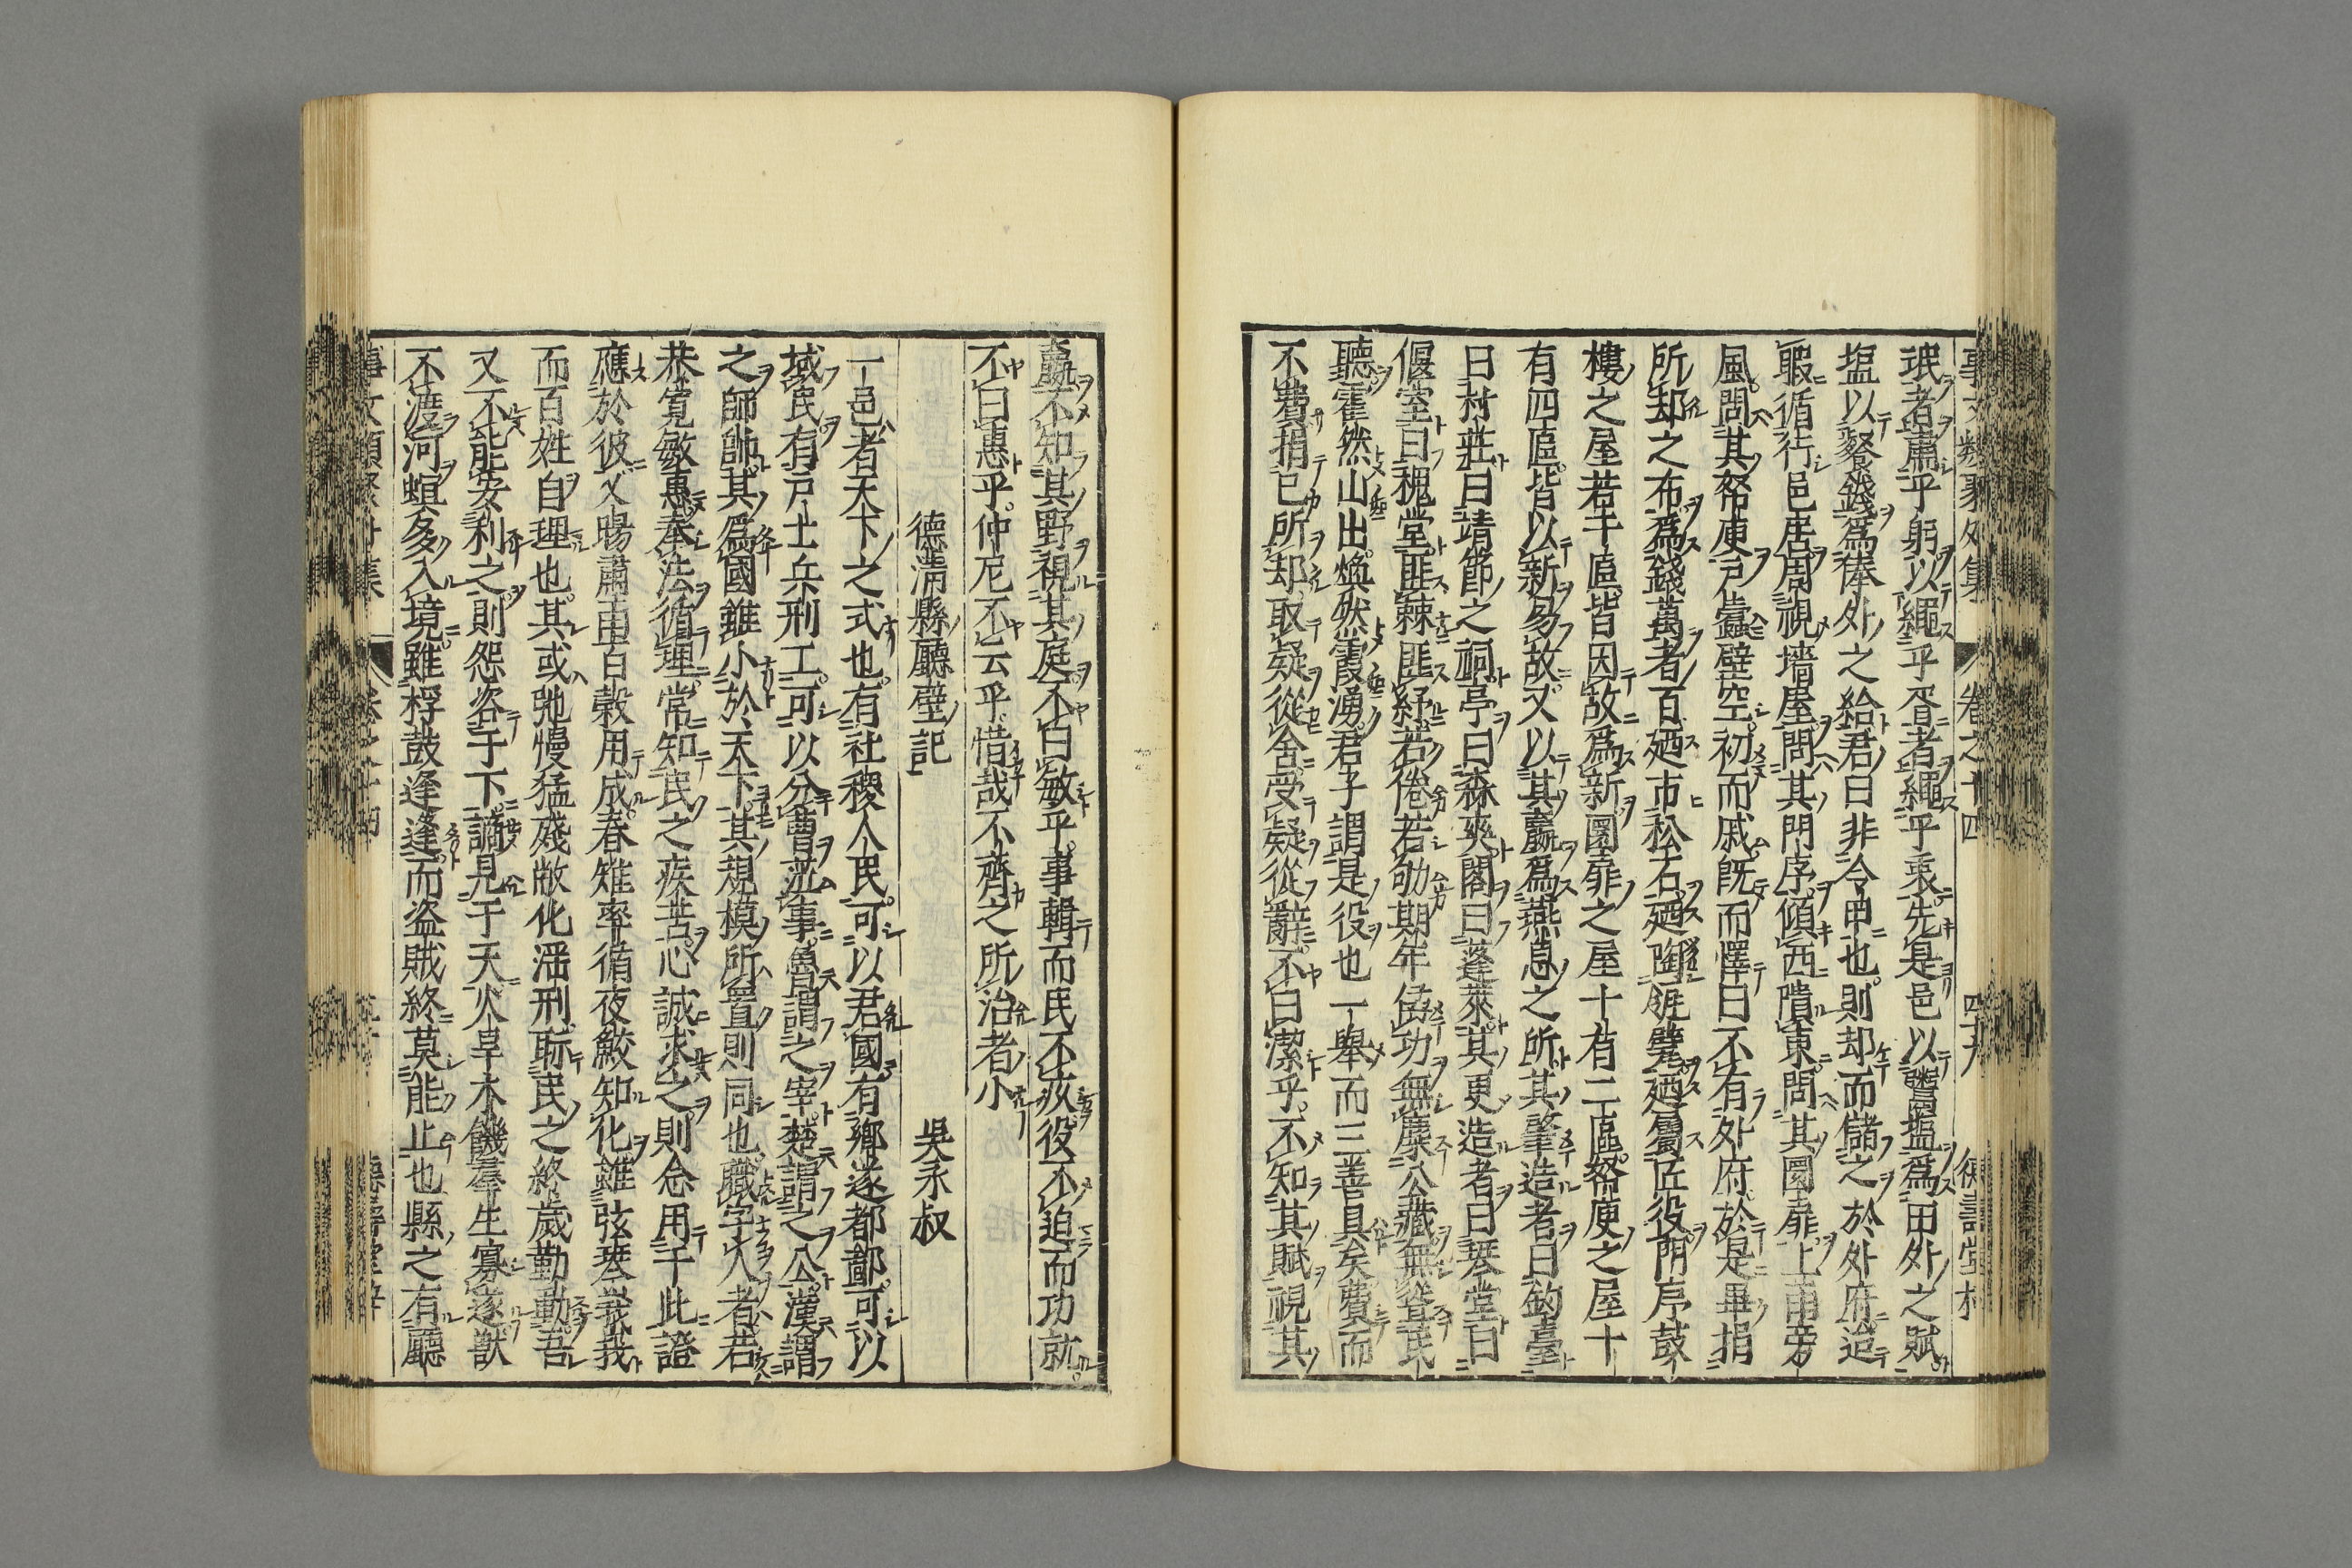 事文類聚外集 卷之十四
珉者肅乎躬以繩乎胥者繩乎吏先是邑以醬塩爲田外之賦
塩以餐錢爲俸外之給君曰非令甲也則却而儲之於外府迨
暇循行邑居周視墻屋問其門序傾西隤東問其圜扉上雨旁
風問其帑庾戶蠹壁空初而戚旣而懌曰不有外府於是畢捐
所却之布爲錢萬者百廼市松石廼陶瓴甓廼屬匠役門序鼓
樓之屋若干區皆因故爲新圜扉之屋十有二區帑庾之屋十
有四區皆以新易故又以其羸爲燕息之所其肇造者曰鈞臺
曰村莊曰靖節之祠亭曰森爽閣曰蓬萊其更造者曰琴堂曰
偃室曰槐堂匪棘匪紓若倦若劬期年僝功無糜公藏無聳民
聽霍然山出煥然霞湧君子謂是役也一舉而三善具矣費而
不費捐已所却取疑從舍受疑從辭不曰潔乎不知其賦視其
羸不知其野視其庭不曰敏乎事輯而民不疚役不迫而功就
不曰惠乎仲尼不云乎惜哉不齊之所治者小
德清縣廳壁記 吳永叔
一邑者天下之式也有社稷人民可以君國有鄉遂都鄙可以
域民有戶士兵刑工可以分曹涖事魯謂之宰楚謂之公漢謂
之師帥其爲國雖小於天下其規模所置則同也職字人者若
恭寬敏惠奉法循理常知民之疾苦心誠求之則念用于此證
應於彼乂暘肅雨百穀用成春雉率循夜鮫知化雖弦琴莪莪
而百姓自理也其或弛慢猛殘敝化滛刑眎民之終歲勤動吾
又不能安利之則怨咨于下謫見于天火旱木饑羣生寡遂獸
不渡河螟多入境雖桴鼓逢逢而盗賊終莫能止也縣之有廳